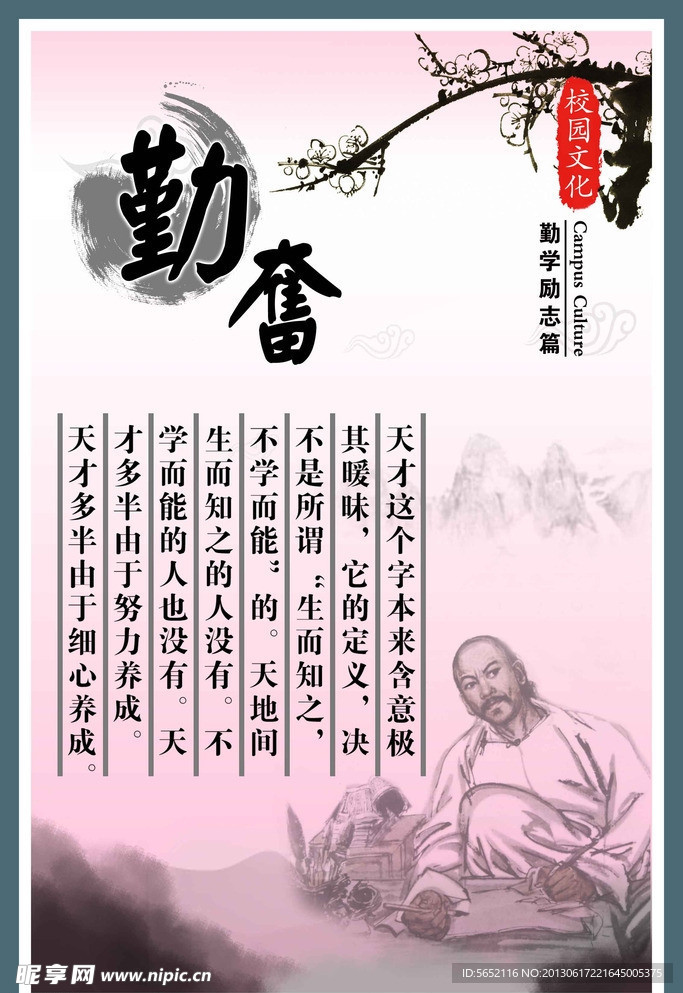 勤奮
校园文化
勤学励志篇
Campus Culture
天才这个字本来含意极
其暖昧，它的定义，决
不是所谓“生而知之，
不学而能”的。天地间
生而知之的人没有。不
学而能的人也没有。天
才多半由于努力养成。
天才多半由于细心养成。
昵享网 www.nipic.cn
ID:5652116 NO:20130617221645005375